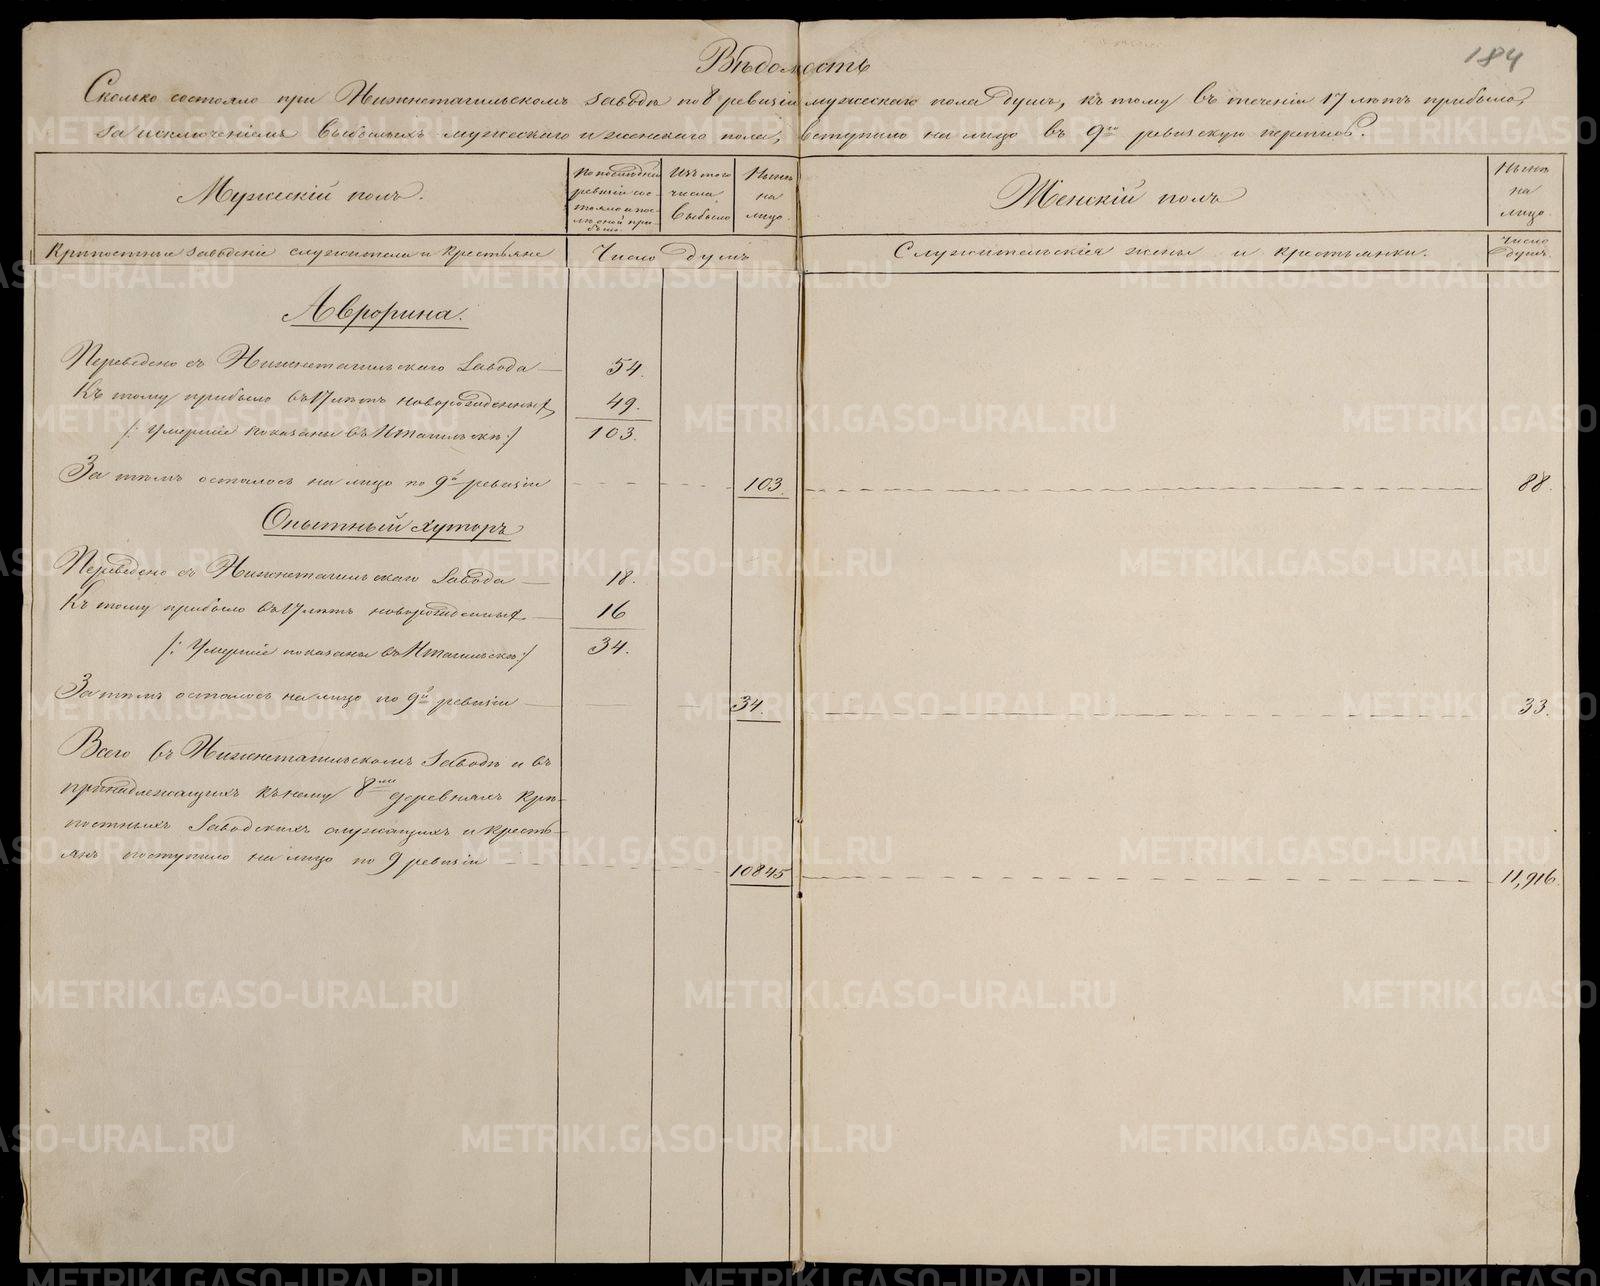 184
Вѣдомость
Сколько состояло при Нижнетагильскомъ заводѣ по 8 ревизіи мужескаго пола душъ, къ тому въ теченіи 17 лѣтъ прибыло,
за исключеніемъ выбылыхъ мужескаго и женскаго пола, вступило на лицо въ 9ю ревизскую перепись.
Мужескій полъ.
По последней ревизіи состояло и после оной прибыло
Изъ того числа выбыло
Нынѣ на лицо.
Женскій полъ
Нынѣ на лицо.
Крѣпостные заводскіе служители и крестьяне
Число душъ
Служительскія жены и крестьянки.
Число душъ.
Аврорина.
Переведено съ Нижнетагильскаго завода — 54.
Къ тому прибыло въ 17 лѣтъ новорожденныхъ 49.
/: Умершіе показаны въ Нтагильскѣ :/ 103.
За тѣмъ осталось на лицо по 9й ревизіи 103. 88.
Опытный хуторъ
Переведено съ Нижнетагильскаго завода — 18.
Къ тому прибыло въ 17 лѣтъ новорожденныхъ — 16
/: Умершіе показаны въ Нтагильскѣ :/ 34.
За тѣмъ осталось на лицо по 9й ревизіи — 34. 33.
Всего въ Нижнетагильскомъ заводѣ и въ
принадлежащихъ къ нему 8ми деревняхъ крѣ-
постныхъ заводскихъ служащихъ и кресть-
янъ поступило на лицо по 9 ревизіи 10845 11,916.
METRIKI.GASO-URAL.RU